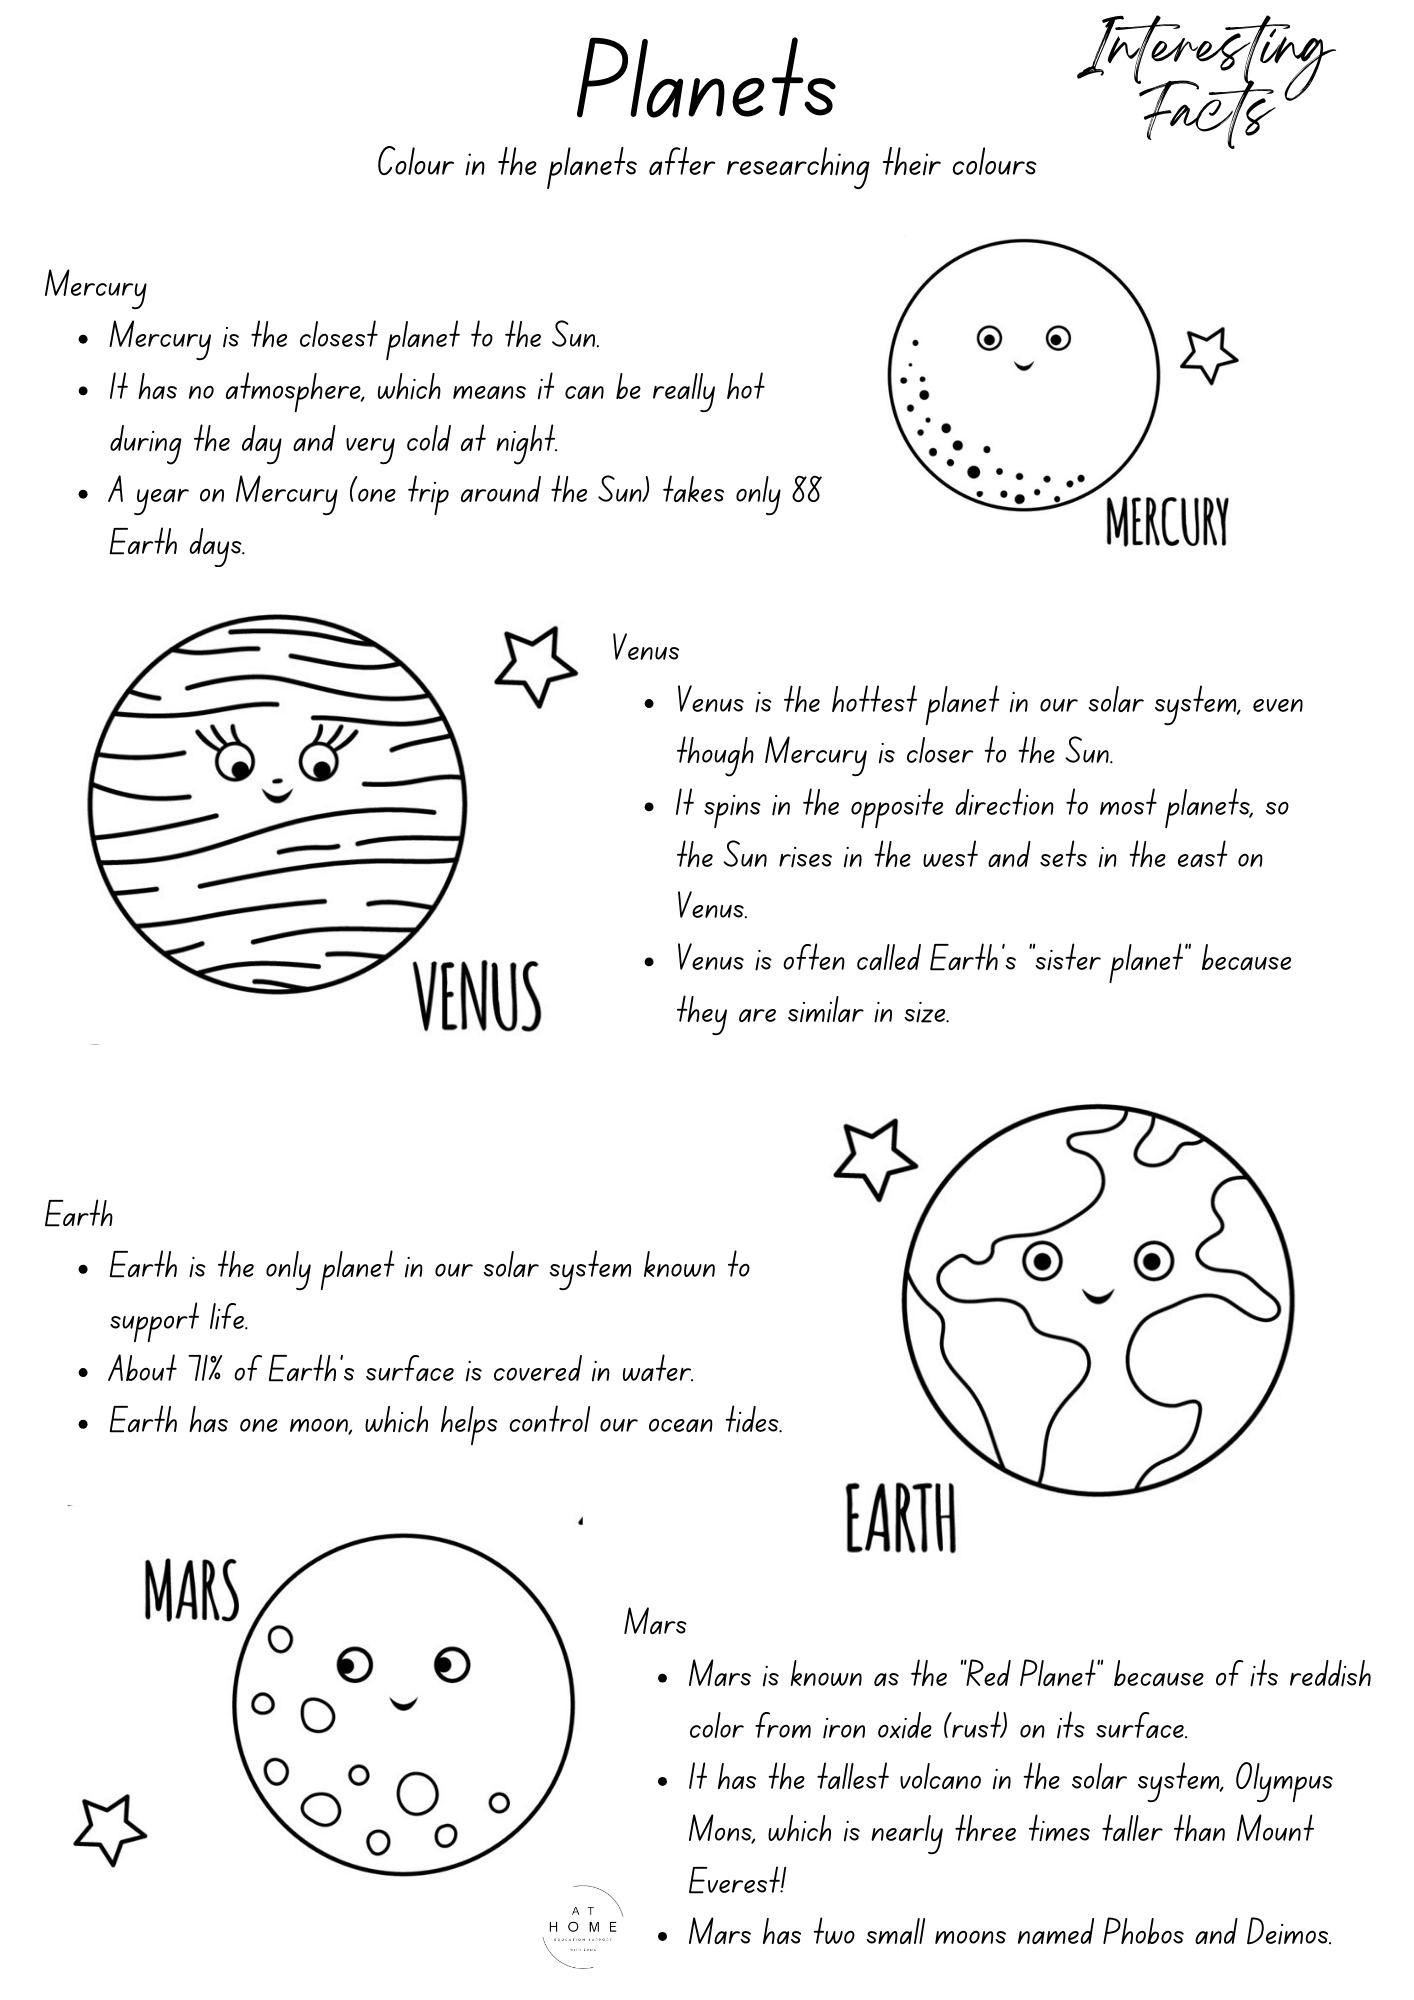 Planets
Interesting
Facts
Colour in the planets after researching their colours
Mercury
• Mercury is the closest planet to the Sun.
• It has no atmosphere, which means it can be really hot
during the day and very cold at night.
• A year on Mercury (one trip around the Sun) takes only 88
Earth days.
MERCURY
VENUS
Venus
• Venus is the hottest planet in our solar system, even
though Mercury is closer to the Sun.
• It spins in the opposite direction to most planets, so
the Sun rises in the west and sets in the east on
Venus.
• Venus is often called Earth's "sister planet" because
they are similar in size.
Earth
• Earth is the only planet in our solar system known to
support life.
• About 71% of Earth's surface is covered in water.
• Earth has one moon, which helps control our ocean tides.
EARTH
MARS
Mars
• Mars is known as the "Red Planet" because of its reddish
color from iron oxide (rust) on its surface.
• It has the tallest volcano in the solar system, Olympus
Mons, which is nearly three times taller than Mount
Everest!
• Mars has two small moons named Phobos and Deimos.
AT
HOME
EDUCATION SUPPORT